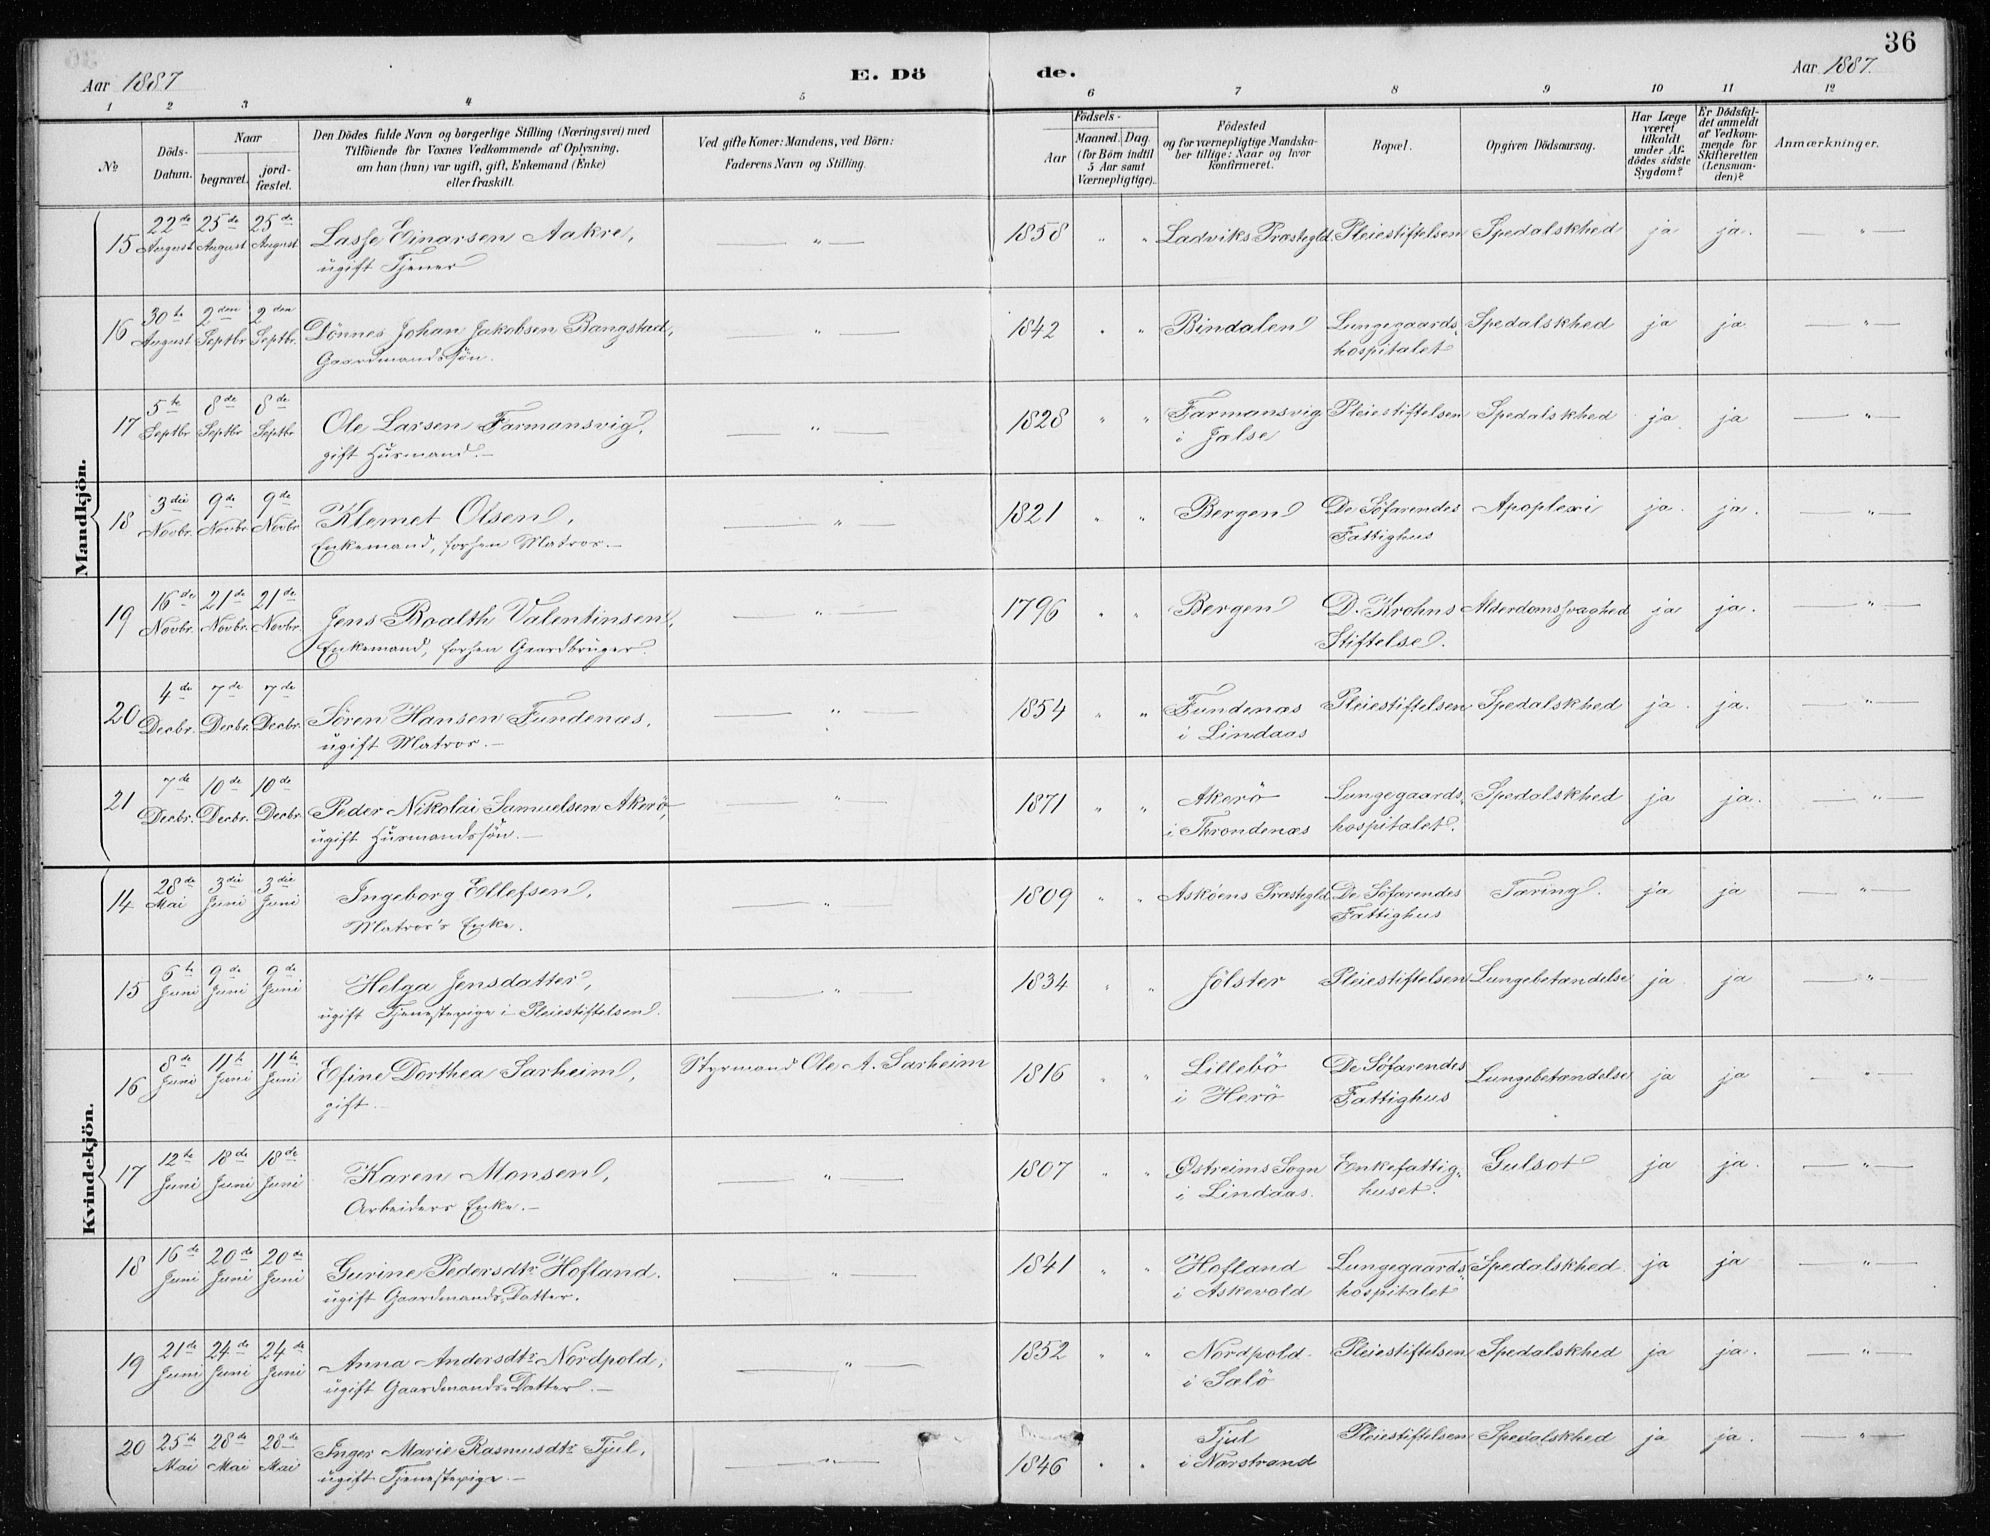 36
Aar 1887
E. Dö
de.
Aar 1887.
1 2 3 4 5 6 7 8 9 10 11 12
№
Döds-
Datum.
Naar
begravet.
jord-
fæstet.
Den Dödes fulde Navn og borgerlige Stilling (Næringsvei) med
Tilföiende for Voxnes Vedkommende af Oplysning,
om han (hun) var ugift, gift, Enkemand (Enke)
eller fraskilt.
Ved gifte Koner: Mandens, ved Börn:
Faderens Navn og Stilling.
Födsels-
Aar
Maaned. Dag.
(for Börn indtil
5 Aar samt
Værnepligtige).
Födested
og for værnepligtige Mandskaber tillige: Naar og hvor
konfirmeret.
Bopæl.
Opgiven Dödsaarsag.
Har Læge
været
tilkaldt
under Af-
dödes sidste
Sygdom?
Er Dödsfal-
det anmeldt
af Vedkom-
mende for
Skifteretten
(Lensman-
den)?
Anmærkninger.
Mandkjön.
15 22de August 25de August 25de August Lasse Einarsen Aakre, — " — 1858 " " Ladviks Præstegld. Pleiestiftelsen Spedalskhed ja ja. — " —
ugift Tjener
16 30te August 2den Septbr 2den Septbr. Dönnes Johan Jakobsen Bangstad, — " — 1842 " " Bindalen Lungegaards Spedalskhed ja ja. — " —
Gaardmandssön. hospitalet
17 5te Septbr 8de Septbr 8de Septbr Ole Larsen Farmansvig, — " — 1828 " " Farmansvig Pleiestiftelsen Spedalskhed ja ja — " —
gift Husmand. — i Jalse
18 3die Novbr. 9de Novbr. 9de Novbr Klemet Olsen, — " — 1821 " " Bergen De Söfarendes Apoplexi ja ja. — " —
Enkemand, forhen Matros. — Fattighus
19 16de Novbr. 21de Novbr. 21de Novbr. Jens Boalth Valentinsen, — " — 1796 " " Bergen D. Krohns Alderdomssvaghed ja ja. — " —
Enkemand, forhen Gaardbruger. Stiftelse.
20 4de Decbr. 7de Decbr. 7de Decbr. Sören Hansen Fundenæs, — " — 1854 " " Fundenæs Pleiestiftelsen Spedalskhed ja ja. — " —
ugift Matros. — i Lindaas
21 7de Decbr. 10de Decbr. 10de Decbr. Peder Nikolai Samuelsen Akerö, — " — 1871 " " Akerö Lungegaards Spedalskhed ja ja. — " —
ugift Husmandssön. — i Throndenæs hospitalet.
Kvindekjön.
14 28de Mai 3die Juni 3die Juni Ingeborg Ellefsen, — " — 1809 " " Asköens Præstegld. De Söfarendes Tæring. ja ja — " —
Matros's Enke. Fattighus
15 6te Juni 9de Juni 9de Juni Helga Jensdatter, — " — 1834 " " Jölster Pleiestiftelsen Lungebetændelse ja ja — " —
ugift Tjenestepige i Pleiestiftelsen.
16 8de Juni 11te Juni 11te Juni Efine Dorthea Sarheim, Styrmand Ole A. Sarheim 1816 " " Lillebö De Söfarendes Lungebetændelse ja ja — " —
gift. — i Herö Fattighus
17 12te Juni 18de Juni 18de Juni Karen Monsen, — " — 1807 " " Østreims Sogn Enkefattig- Gulsot ja ja. — " —
Arbeiders Enke. — i Lindaas. huset.
18 16de Juni 20de Juni 20de Juni Gurine Pedersdtr Hofland. — " — 1841 " " Hofland Lungegaards Spedalskhed. ja ja — " —
ugift Gaardmands Datter. i Askevold hospitalet
19 21de Juni 24de Juni 24de Juni Anna Andersdtr Nordpold, — " — 1852 " " Nordpold Pleiestiftelsen Spedalskhed ja ja. — " —
ugift Gaardmands Datter. — i Sælö
20 25de Mai 28de Mai 28de Mai Inger Marie Rasmusdtr Tjul, — " — 1846 " " Tjul Pleiestiftelsen Spedalskhed ja ja. — " —
ugift Tjenestepige. — i Nærstrand